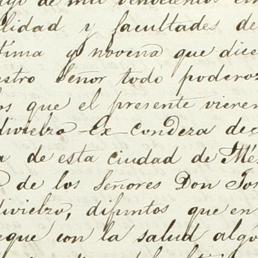 de mil novecientos
lidad y facultades de
tima y novena que dice
estro Señor todo poderoz
los que el presente vieren
divielzo Ex-Condeza de
a de esta ciudad de Mé
de los Señores Don Jo
divielzo, difuntos que en
que con la salud algo